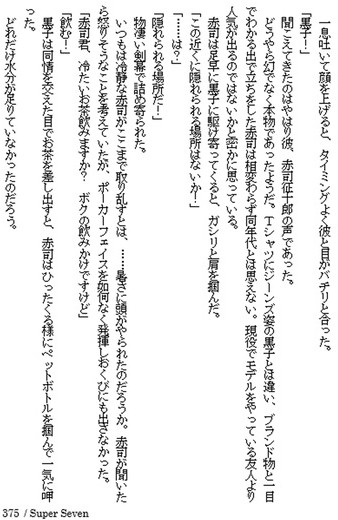 一息吐いて顔を上げると、タイミングよく彼と目がバチリと合った。
「黒子！」
聞こえてきたのはやはり彼、赤司征十郎の声であった。
どうやら幻でなく本物であったようだ。Ｔシャツにジーンズ姿の黒子とは違い、ブランド物と一目
でわかる出で立ちをした赤司は相変わらず同年代とは思えない。現役でモデルをやっている友人より
人気が出るのではないかと密かに思っている。
赤司は足早に黒子に駆け寄ってくると、ガシリと肩を掴んだ。
「この近くに隠れられる場所はないか！」
「……は？」
「隠れられる場所だ！」
物凄い剣幕で詰め寄られた。
いつもは冷静な赤司がここまで取り乱すとは、……暑さに頭がやられたのだろうか。赤司が聞いた
ら怒りそうなことを考えていたが、ポーカーフェイスを如何なく発揮しおくびにも出さなかった。
「赤司君、冷たいお茶飲みますか？　ボクの飲みかけですけど」
「飲む！」
黒子は同情を交えた目でお茶を差し出すと、赤司はひったくる様にペットボトルを掴んで一気に呷
った。
どれだけ水分が足りていなかったのだろう。
375 / Super Seven